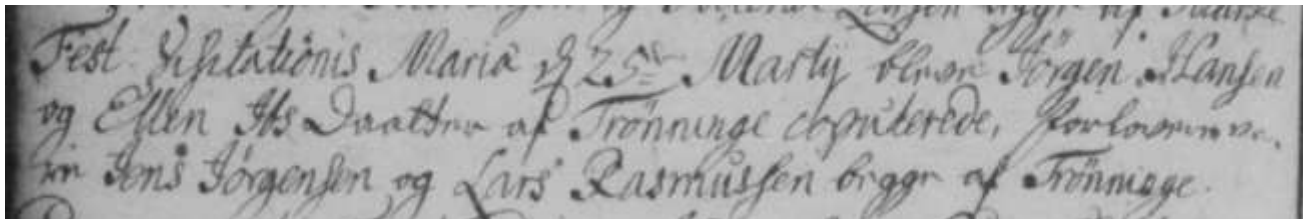 Fest Visitationis Mariæ d 25de Martij bleve Jörgen Hansen
og Ellen Ibs Daatter af Trönninge copulerede, Forloverne va-
re Jens Jörgensen og Lars Rasmussen begge af Trönninge.